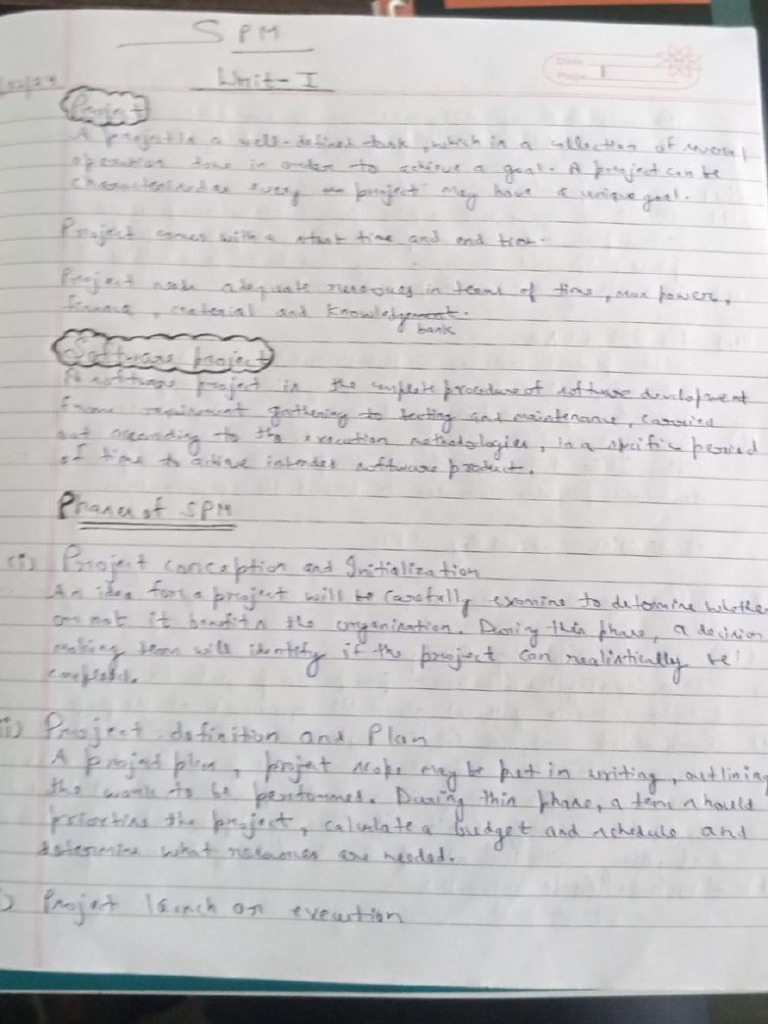 SPM
Unit-I
Date
Page 1
Project
A project is a well-defined task, which is a collection of several
operation done in order to achieve a goal. A project can be
characterized as every project may have a unique goal.
Project comes with a start time and end time.
Project needs adequate resources in terms of time, man power,
finance, material and knowledge
bank
Software project
A software project is the complete procedure of software development
from requirement gathering to testing and maintenance, carried
out according to the execution methodologies, in a specific period
of time to achieve intended software product.
Phases of SPM
(i) Project conception and Initialization
An idea for a project will be carefully examine to determine whether
or not it benefits the organisation. During this phase, a decision
making team will identify if the project can realistically be
completed.
ii) Project definition and Plan
A project plan, project scope may be put in writing, outlining
the work to be performed. During this phase, a team should
prioritize the project, calculate a budget and schedule and
determine what resources are needed.
Project launch or execution